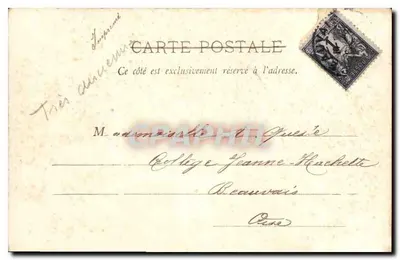 Imprimé
CARTE POSTALE
Ce côté est exclusivement réservé à l'adresse.
Très ancienne
Mademoiselle
Collège Jeanne-Hachette
Beauvais
Oise